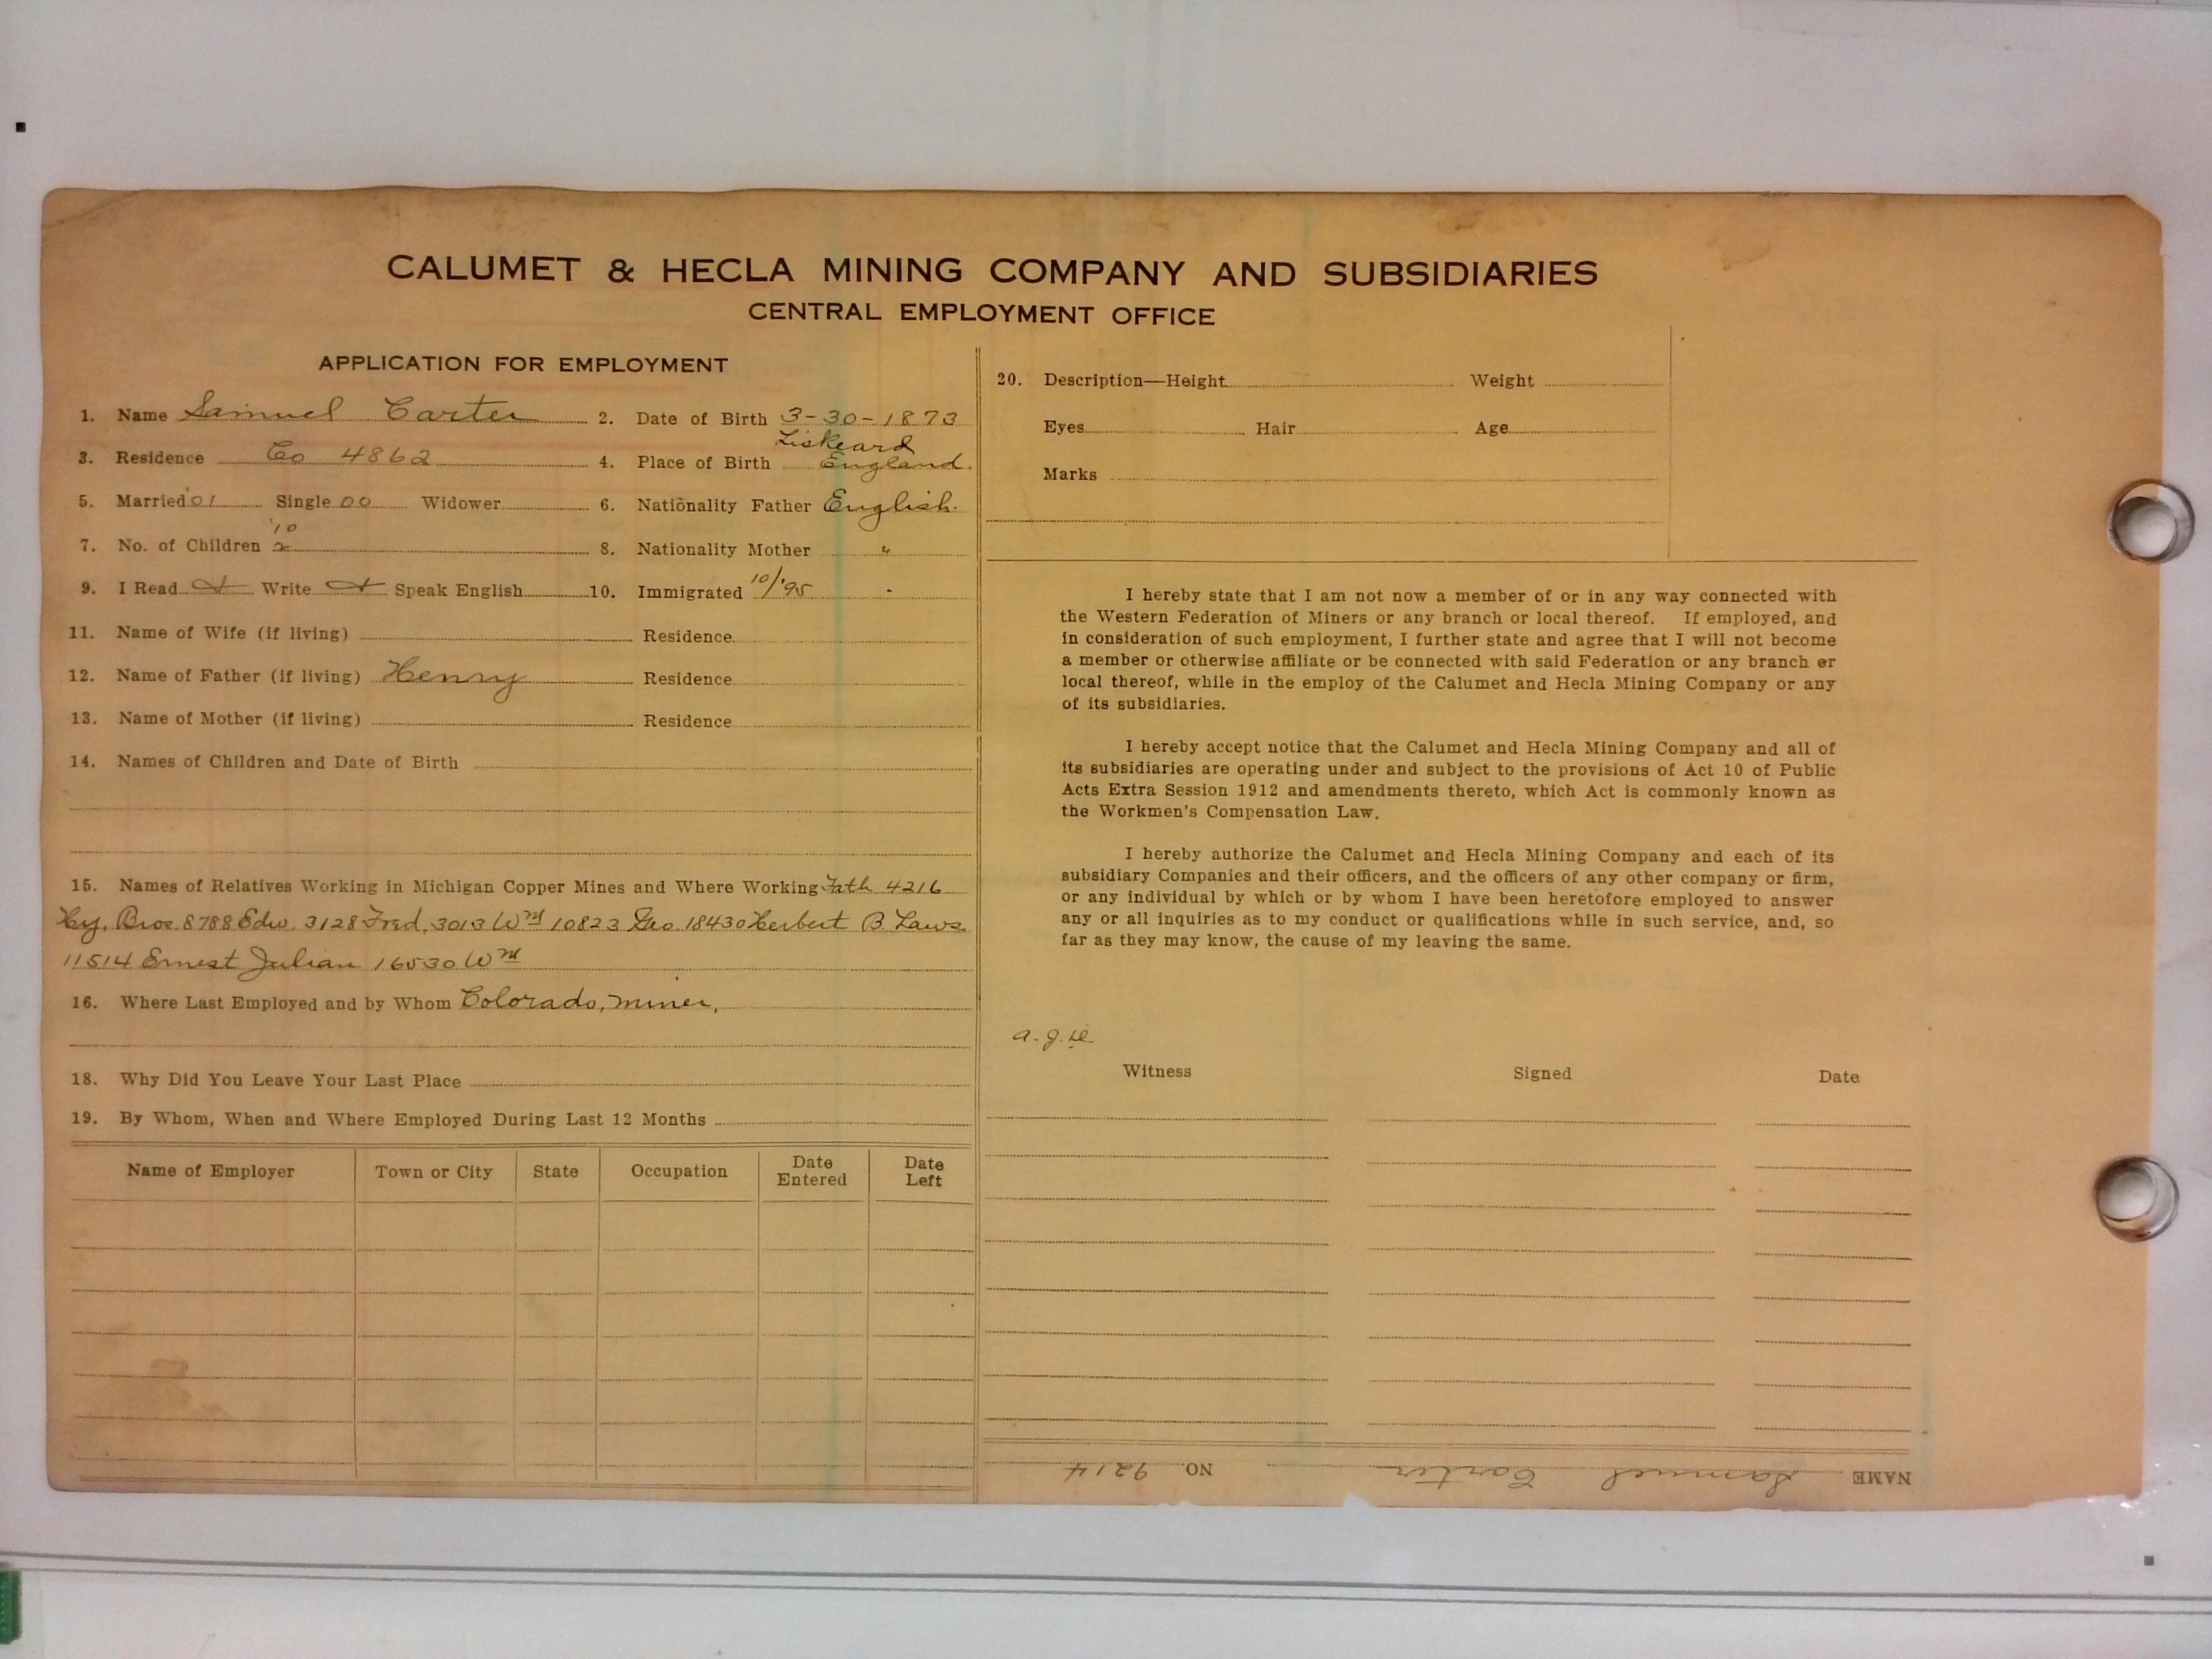 CALUMET & HECLA MINING COMPANY AND SUBSIDIARIES
CENTRAL EMPLOYMENT OFFICE
APPLICATION FOR EMPLOYMENT
1. Name Samuel Carter 2. Date of Birth 3-30-1873
3. Residence Co 4862 4. Place of Birth Liskeard England.
5. Married '01 Single 00 Widower 6. Nationality Father English.
7. No. of Children '10 2 8. Nationality Mother "
9. I Read Write Speak English 10. Immigrated 10/'95
11. Name of Wife (if living) Residence
12. Name of Father (if living) Henry Residence
13. Name of Mother (if living) Residence
14. Names of Children and Date of Birth
15. Names of Relatives Working in Michigan Copper Mines and Where Working Fath 4216
Hy. Bros. 8788 Edw. 3128 Fred, 3013 Wm 10823 Geo. 18430 Herbert B. Laws.
11514 Ernest Julian 16530 Wm
16. Where Last Employed and by Whom Colorado, miner,
18. Why Did You Leave Your Last Place
19. By Whom, When and Where Employed During Last 12 Months
Name of Employer Town or City State Occupation Date Entered Date Left
20. Description—Height Weight
Eyes Hair Age
Marks
I hereby state that I am not now a member of or in any way connected with
the Western Federation of Miners or any branch or local thereof. If employed, and
in consideration of such employment, I further state and agree that I will not become
a member or otherwise affiliate or be connected with said Federation or any branch or
local thereof, while in the employ of the Calumet and Hecla Mining Company or any
of its subsidiaries.
I hereby accept notice that the Calumet and Hecla Mining Company and all of
its subsidiaries are operating under and subject to the provisions of Act 10 of Public
Acts Extra Session 1912 and amendments thereto, which Act is commonly known as
the Workmen's Compensation Law.
I hereby authorize the Calumet and Hecla Mining Company and each of its
subsidiary Companies and their officers, and the officers of any other company or firm,
or any individual by which or by whom I have been heretofore employed to answer
any or all inquiries as to my conduct or qualifications while in such service, and, so
far as they may know, the cause of my leaving the same.
Witness Signed Date
NAME Samuel Carter NO. 9214